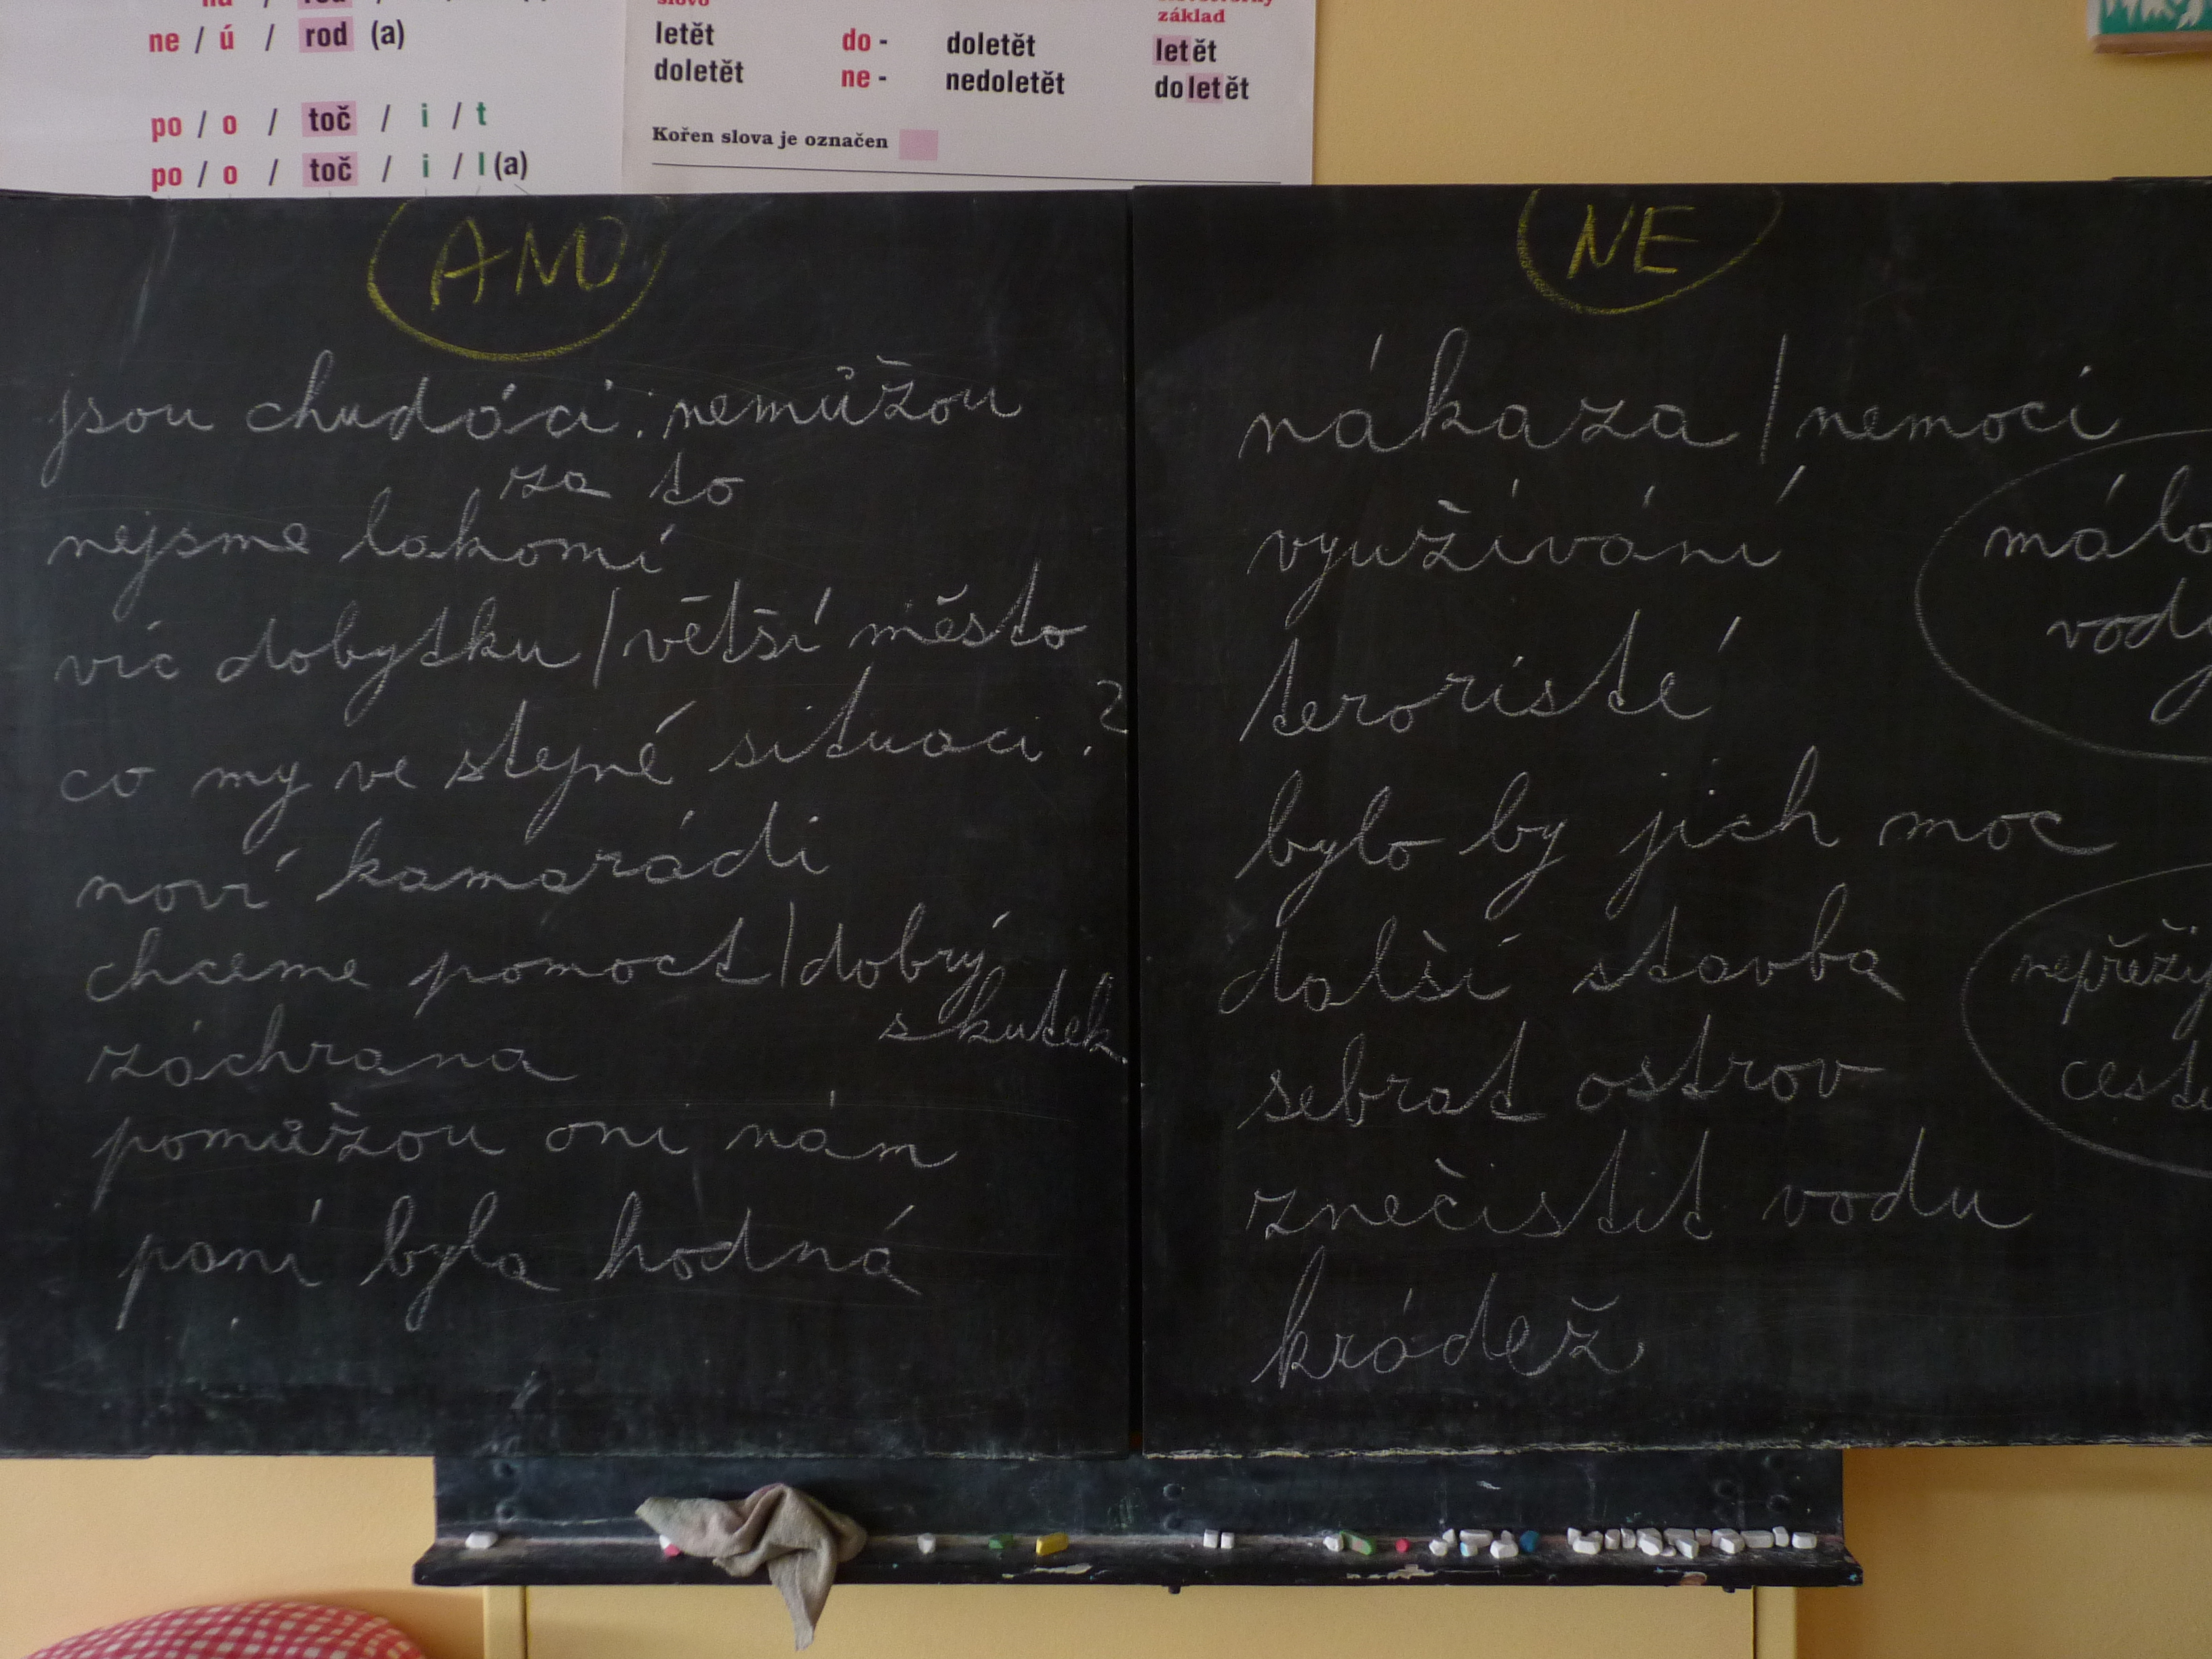 ne / ú / rod (a)
po / o / toč / i / t
po / o / toč / i / l (a)
slovo
základ
letět do - doletět letět
doletět ne - nedoletět doletět
Kořen slova je označen
ANO
jsou chudáci: nemůžou
za to
nejsme lakomí
víc dobytku / větší město
co my ve stejné situaci?
noví kamarádi
chceme pomoct / dobrý
skutek
záchrana
pomůžou oni nám
paní byla hodná
NE
nákaza / nemoci
využívání
teroristé
bylo by jich moc
další stavba
sebrat ostrov
znečistit vodu
krádež
málo
vody